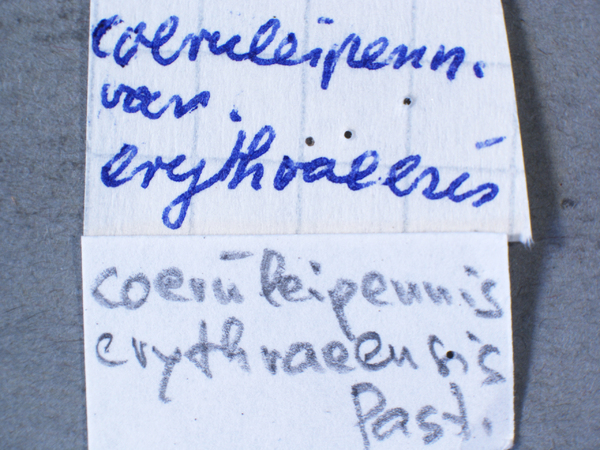 coeruleipenn.
var.
erythraeesis
coerūleipennis
erythraeensis
Past.